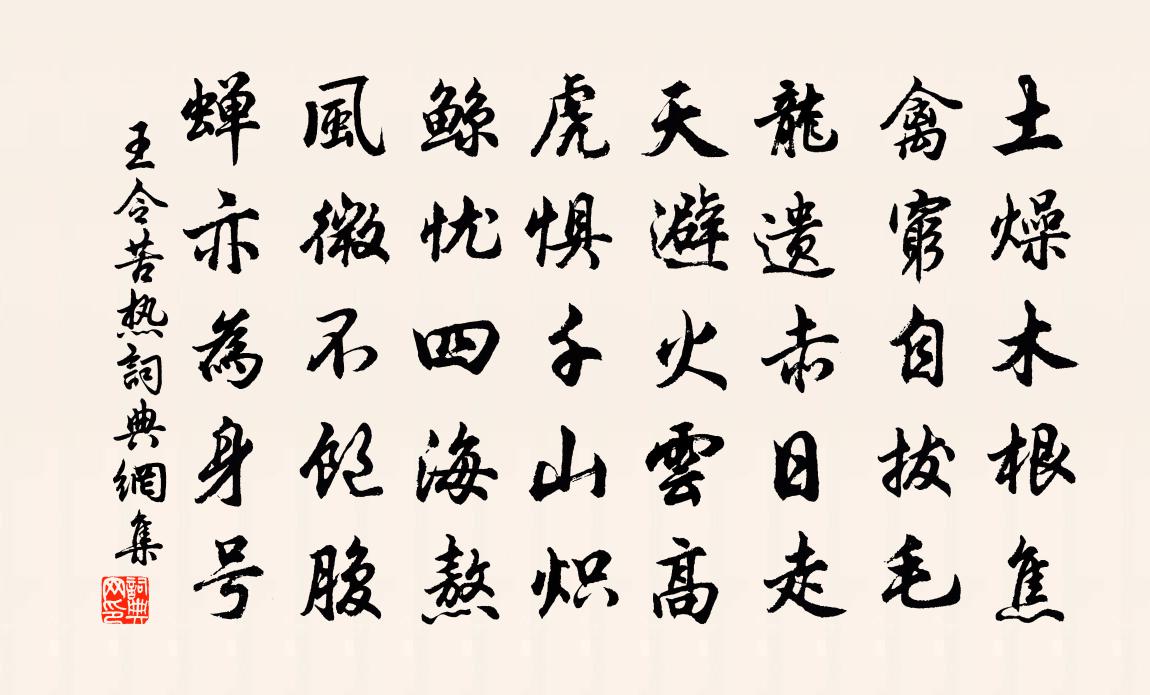 土燥木根焦
禽窮自拔毛
龍遗赤日走
天避火雲高
虎惧千山炽
鲸忧四海熬
風微不飽腹
蝉亦為身号
王令苦热詞典網集
詞典网印